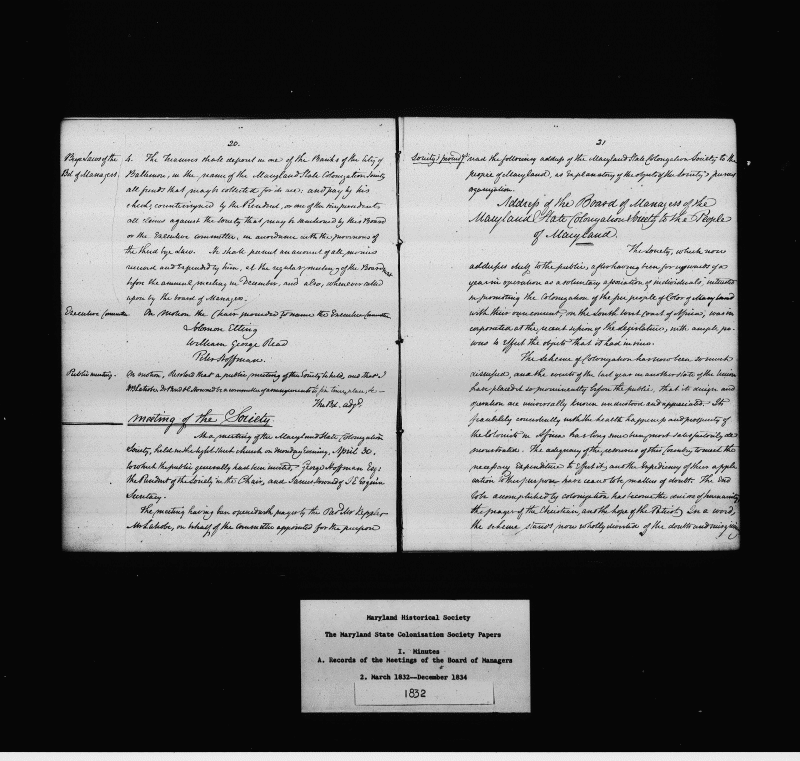 20.
Bye Laws of the
Bd. of Managers.
4. The Treasurer shall deposit in one of the Banks of the City of
Baltimore, in the name of the Maryland State Colonization Society
all funds that may be collected for its use: and pay by his
check, countersigned by the President, or one of the vice presidents
all claims against the Society that may be sanctioned by this Board
or the Executive Committee, in accordance with the provisions of
the third bye Law. He shall present an account of all monies
received and expended by him, at the regular meeting of the Board next
before the annual meeting in December, and also, whenever called
upon by the board of Managers.
Executive Committee
On Motion the Chair proceeded to name the Executive Committee
Solomon Etting
William George Read
Peter Hoffman.
Public meeting.
On motion, Resolved that a public meeting of this Society be held, and that
Mr Latrobe be a committee of arrangements to fix time, place, &c.—
The Bd. adjd.
Meeting of the Society.
At a meeting of the Maryland State Colonization
Society, held in the Light Street Church on Monday Evening, April 30.
to which the public generally had been invited, George Hoffman Esq:
the President of the Society in the Chair, and James Howard of J E Esquire
Secretary.
The meeting having been opened with prayer by the Revd Mr Keppler
Mr Latrobe, on behalf of the Committee appointed for the purpose
21
Society's proceedgs
read the following address of the Maryland State Colonization Society to the
people of Maryland, as explanatory of the objects of the Society's present
organization.
Address of the Board of Managers of the
Maryland State Colonization Society to the People
of Maryland.
The Society, which now
addresses itself to the public, after having been for upwards of a
year in operation as a voluntary association of individuals, interested
in promoting the Colonization of the free people of Color of Maryland
with their own consent, on the South West coast of Africa, was in-
corporated at the recent session of the Legislature, with ample po-
wers to effect the objects that it had in view.
The scheme of Colonization has now been so much
discussed, and the events of the last year in another state of the Union
have placed it so prominently before the public, that its design and
operation are universally known understood and appreciated. Its
feasibility consistently with the health happiness and prosperity of
the Colonists in Africa has long since been most satisfactorily de-
monstrated. The adequacy of the resources of this Country to meet the
necessary expenditure to effect it, and the expediency of their appli-
cation to this purpose have ceased to be matters of doubt. The End
to be accomplished by colonization has become the desire of humanity,
the prayer of the Christian, and the hope of the Patriot. In a word,
the scheme stands now wholly divested of the doubts and misgiving
Maryland Historical Society
The Maryland State Colonization Society Papers
I. Minutes
A. Records of the Meetings of the Board of Managers
2. March 1832--December 1834
1832